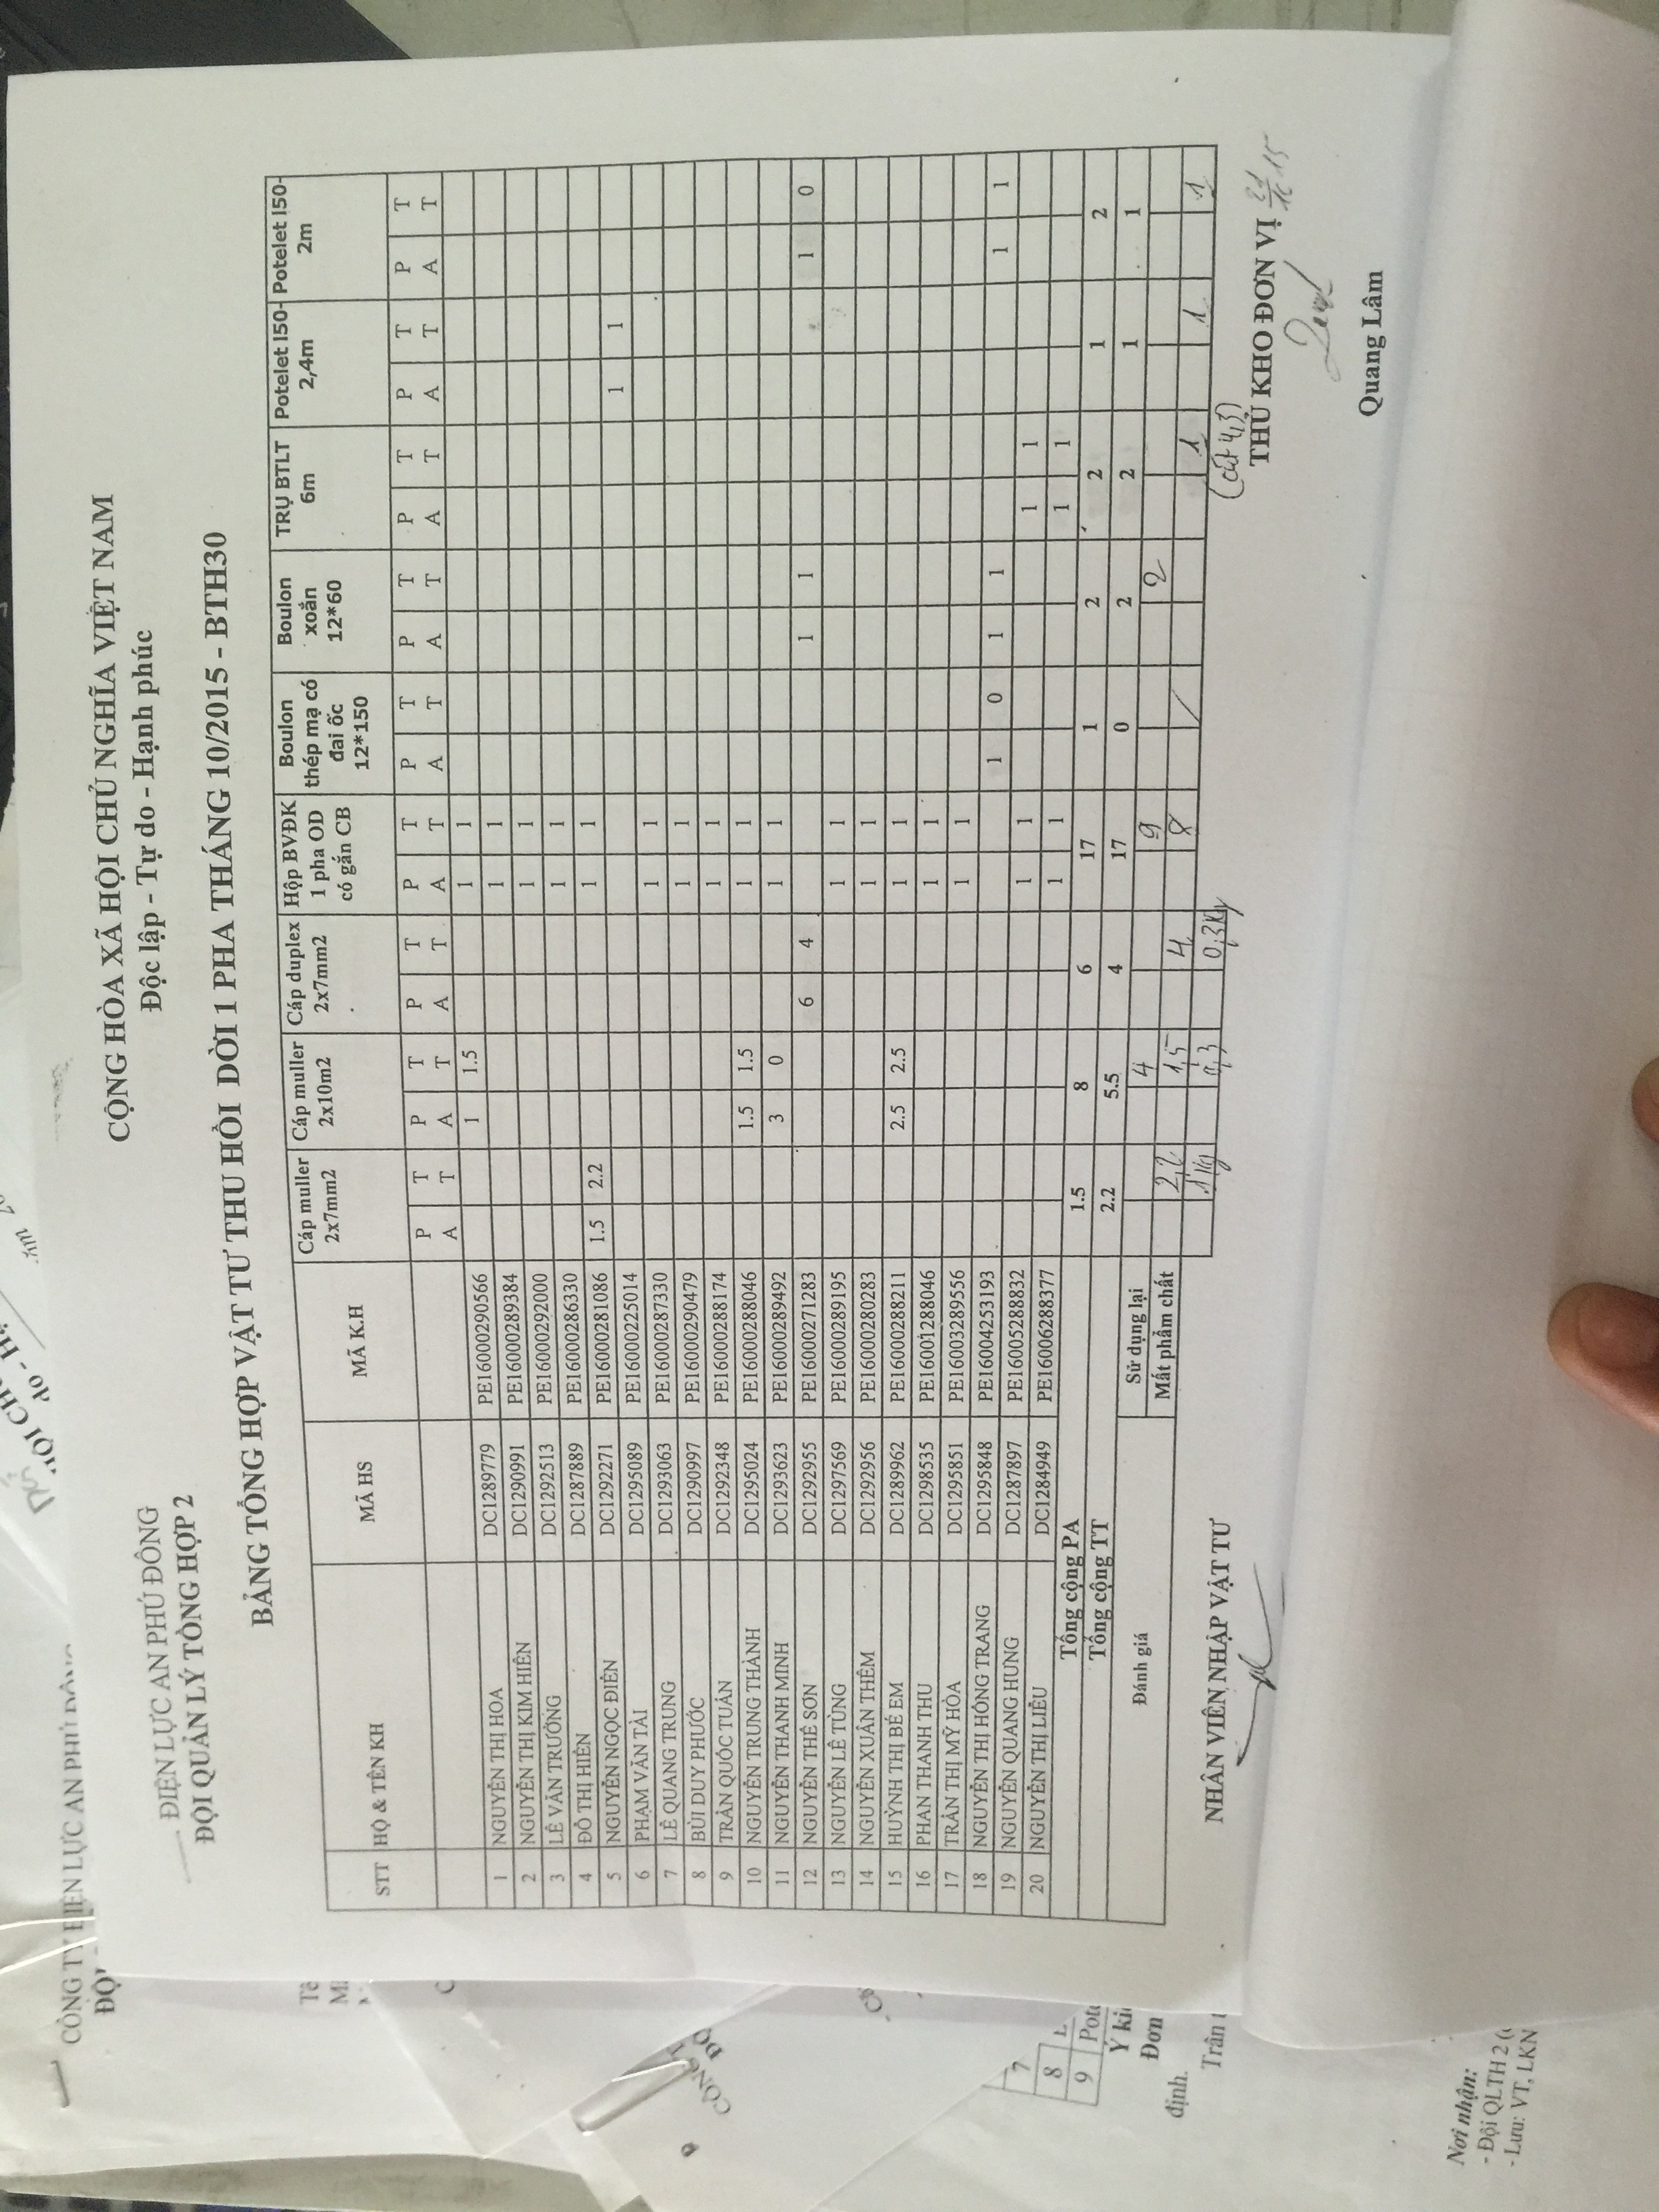 CÔNG TY ĐIỆN LỰC AN PHÚ ĐÔNG
ĐIỆN LỰC AN PHÚ ĐÔNG
ĐỘI QUẢN LÝ TỔNG HỢP 2
CỘNG HÒA XÃ HỘI CHỦ NGHĨA VIỆT NAM
Độc lập - Tự do - Hạnh phúc
BẢNG TỔNG HỢP VẬT TƯ THU HỒI DỜI 1 PHA THÁNG 10/2015 - BTH30
STT HỌ & TÊN KH MÃ HS MÃ K.H Cáp muller 2x7mm2 Cáp muller 2x10m2 Cáp duplex 2x7mm2 Hộp BVĐK 1 pha OD có gắn CB Boulon thép mạ có đai ốc 12*150 Boulon xoắn 12*60 TRỤ BTLT 6m Potelet l50-2,4m Potelet l50-2m
PA TT PA TT PA TT PA TT PA TT PA TT PA TT PA TT PA TT
1 NGUYỄN THỊ HOA DC1289779 PE16000290566 1 1.5 1 1
2 NGUYỄN THỊ KIM HIỀN DC1290991 PE16000289384 1 1
3 LÊ VĂN TRƯỜNG DC1292513 PE16000292000 1 1
4 ĐỖ THỊ HIỀN DC1287889 PE16000286330 1 1
5 NGUYỄN NGỌC ĐIỀN DC1292271 PE16000281086 1.5 2.2 1 1
6 PHẠM VĂN TÀI DC1295089 PE16000225014 1 1
7 LÊ QUANG TRUNG DC1293063 PE16000287330 1 1
8 BÙI DUY PHƯỚC DC1290997 PE16000290479 1 1
9 TRẦN QUỐC TUẤN DC1292348 PE16000288174 1 1
10 NGUYỄN TRUNG THÀNH DC1295024 PE16000288046 1.5 1.5 1 1
11 NGUYỄN THANH MINH DC1293623 PE16000289492 3 0 1 1
12 NGUYỄN THẾ SƠN DC1292955 PE16000271283 6 4 1 1 1 0
13 NGUYỄN LÊ TÙNG DC1297569 PE16000289195 1 1
14 NGUYỄN XUÂN THÊM DC1292956 PE16000280283 1 1
15 HUỲNH THỊ BÉ EM DC1289962 PE16000288211 2.5 2.5 1 1
16 PHAN THANH THU DC1298535 PE16001288046 1 1
17 TRẦN THỊ MỸ HÒA DC1295851 PE16003289556 1 1
18 NGUYỄN THỊ HỒNG TRANG DC1295848 PE16004253193 1 0 1 1 1 1
19 NGUYỄN QUANG HƯNG DC1287897 PE16005288832 1 1 1 1
20 NGUYỄN THỊ LIỄU DC1284949 PE16006288377 1 1 1 1
Tổng cộng PA 1.5 8 6 17 1 2 2 1 2
Tổng cộng TT 2.2 5.5 4 17 0 2 2 1 1
Đánh giá Sử dụng lại 4 9 2
Mất phẩm chất 2,2 1,5 4 8 / 1 1 1
1kg 0,3 0,3kg
(cắt 4,5)
NHÂN VIÊN NHẬP VẬT TƯ
THỦ KHO ĐƠN VỊ 21/10 15
Quang Lâm
7
8
9 Pote
Ý ki
Đơn
định.
Trân t
Nơi nhận:
- Đội QLTH 2 (
- Lưu: VT, LKN